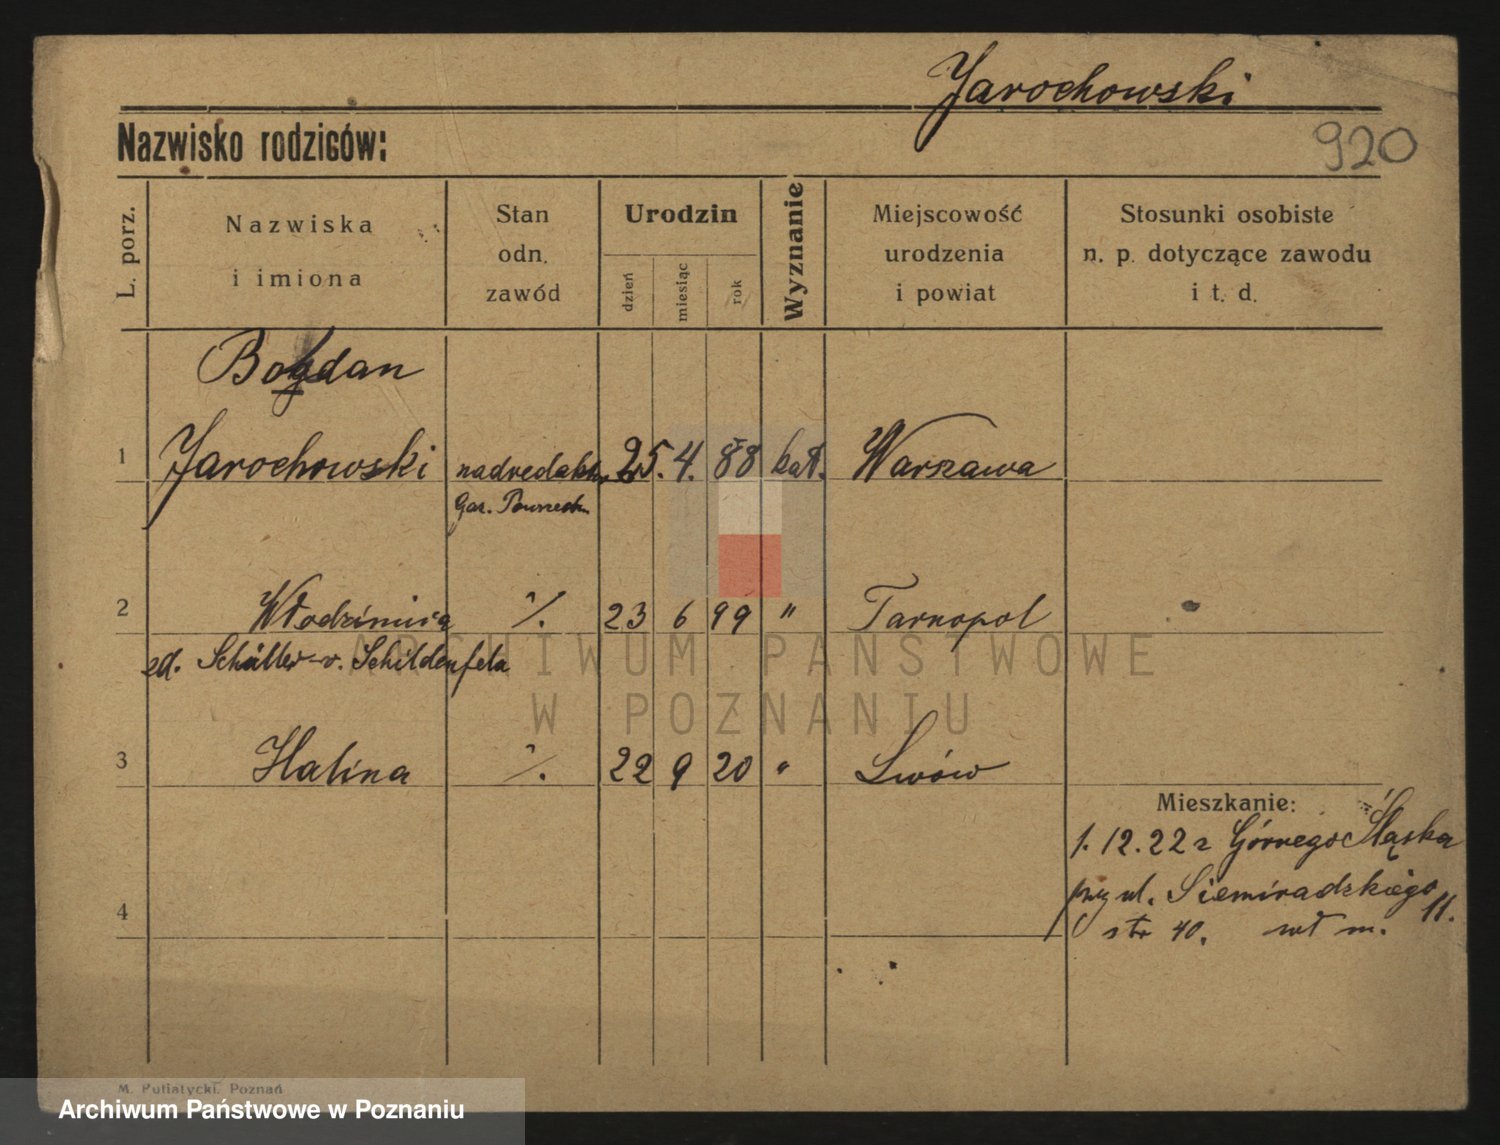 Jarochowski
Nazwisko rodziców:
920
L. porz.
Nazwiska
i imiona
Stan
odn.
zawód
Urodzin
dzień
miesiąc
rok
Wyznanie
Miejscowość
urodzenia
i powiat
Stosunki osobiste
n. p. dotyczące zawodu
i t. d.
Bohdan
1 Jarochowski nadredaktor 25. 4. 88 kat. Warszawa
Gaz. Powszechn.
2 Włodzimira ·/. 23 6 99 " Tarnopol
zd. v. Schildenfeld
3 Halina ·/. 22 9 20 " Lwów
Mieszkanie:
1. 12. 22 z Górnego Śląska
przy ul. Siemiradzkiego 11.
str 40. wł m.
4
ARCHIWUM PAŃSTWOWE
W POZNANIU
M. Putiatycki, Poznań
Archiwum Państwowe w Poznaniu